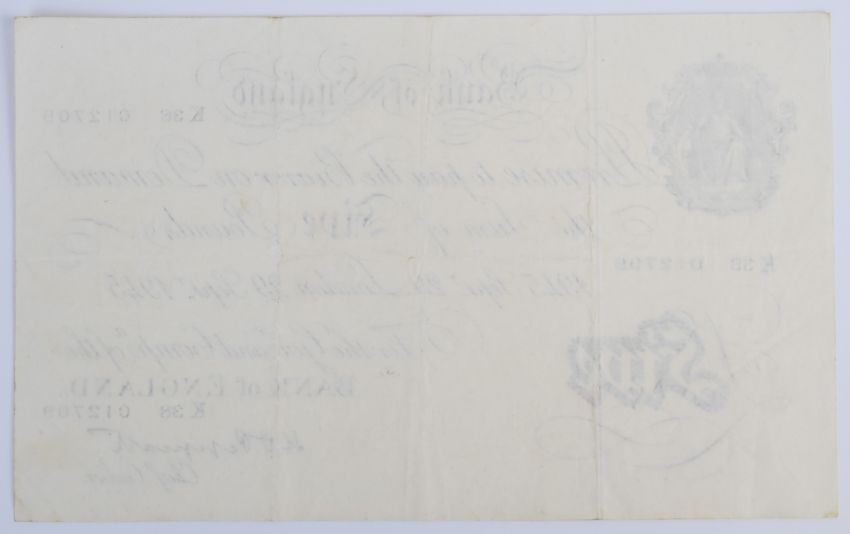 Bank of England
K38 012709
Promise to pay the Bearer on Demand
the Sum of Five Pounds
K38 012709
1945 Sept. 29 London 29 Sept. 1945
For the Govr. and Compa. of the
BANK OF ENGLAND.
Five
K38 012709
Chief Cashier